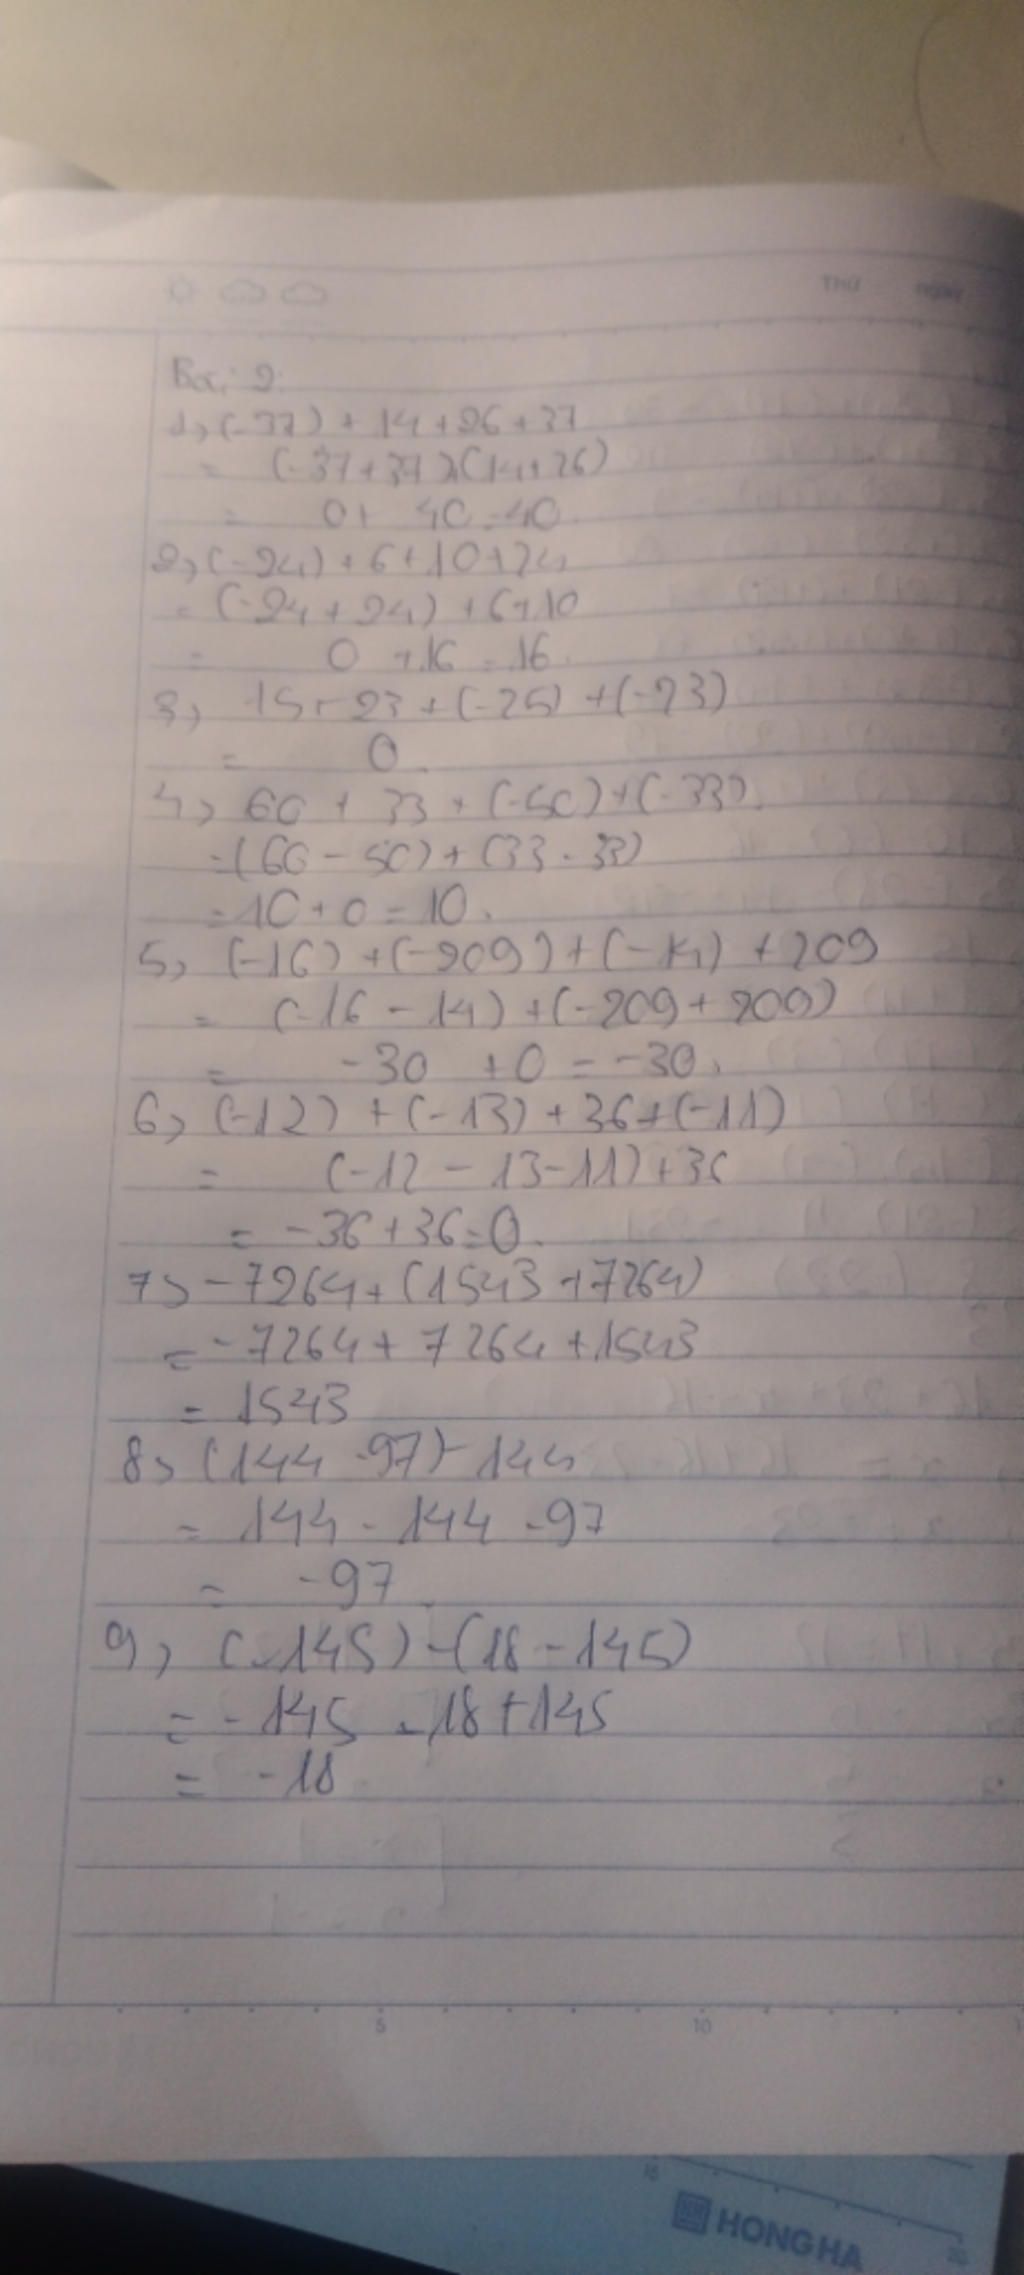 THỨ NGÀY
Bài 2:
1, (-37) + 14 + 26 + 37
= (-37+37)+(14+26)
= 0+ 40 = 40.
2, (-24) + 6 + 10 + 24
= (-24 + 24) + 6+10
= 0 + 16 = 16.
3, 15 + 23 + (-25) + (-23)
= 0.
4, 60 + 33 + (-50) + (-33).
= (60 - 50) + (33 - 33)
= 10 + 0 = 10.
5, (-16) + (-209) + (-14) + 209
= (-16 - 14) + (-209 + 209)
= -30 + 0 = -30.
6, (-12) + (-13) + 36 + (-11)
= (-12 - 13 - 11) + 36
= -36 + 36 = 0.
7, -7264 + (1543 + 7264)
= -7264 + 7264 + 1543
= 1543
8, (144 - 97) - 144
= 144 - 144 - 97
= -97.
9, (-145) - (18 - 145)
= -145 - 18 + 145
= -18.
5 10
15 20
HONG HA